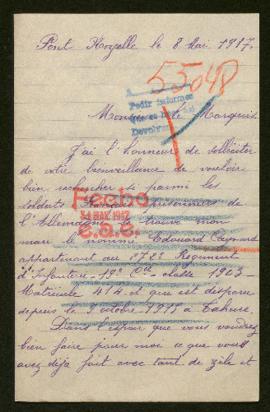 Pont le 8 Mai 1917.
55048
Monsieur le Marquis
Pedir informes
Devolver
J'ai l'honneur de solliciter
de votre bienveillance de vouloir
bien rechercher si parmi les
soldats prisonniers de
l'Allemagne se trouve mon
mari le nommé Edouard
appartenant au 172e Régiment
d'Infanterie - 19e Cie - classe 1903 -
Matricule 414 et qui est disparu
depuis le 3 octobre 1915 à Tahure.
Fecho
31 MAY. 1917
Dans l'espoir que vous voudrez
bien faire pour moi ce que vous
avez déjà fait avec tant de zèle et